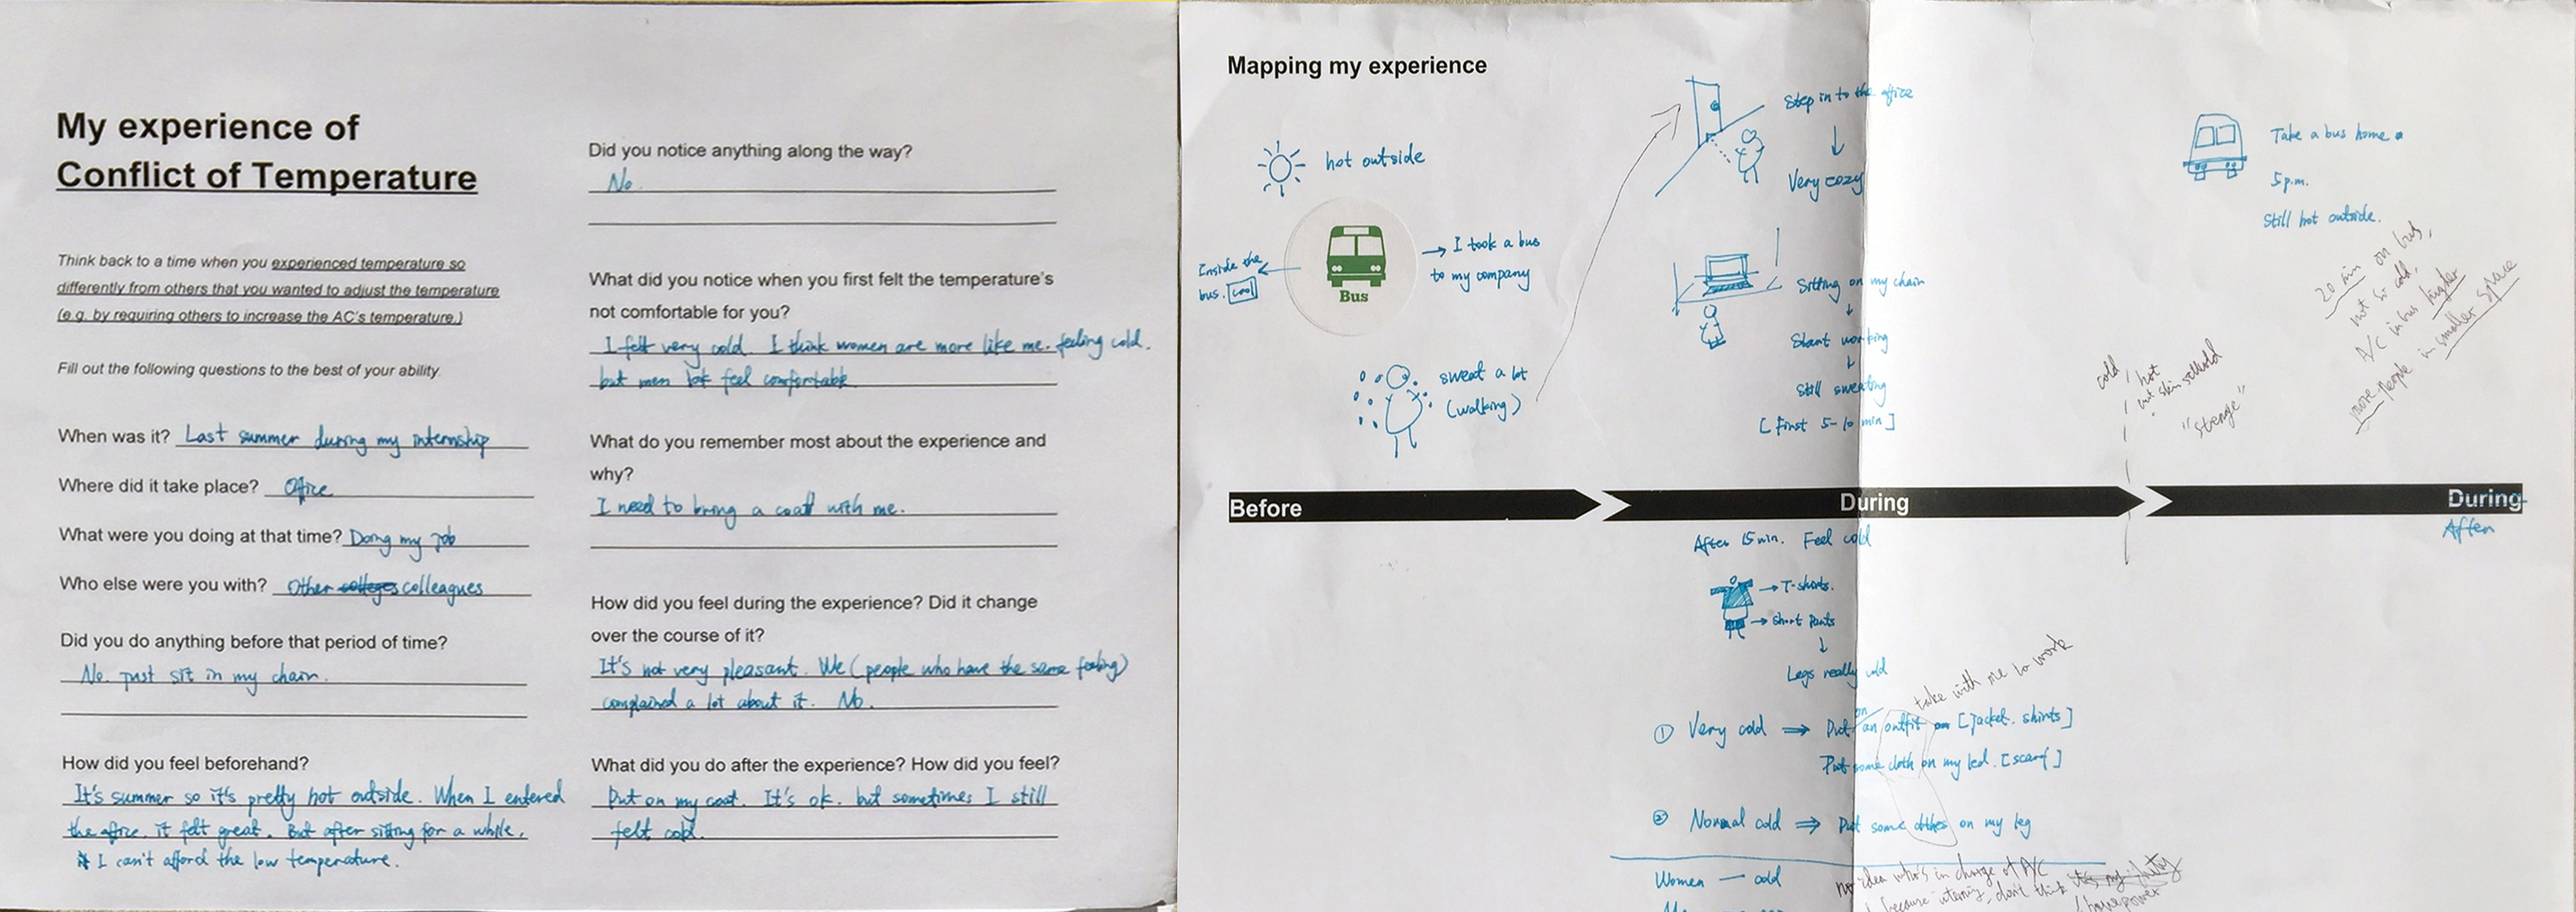 My experience of
Conflict of Temperature
Think back to a time when you experienced temperature so
differently from others that you wanted to adjust the temperature
(e.g. by requiring others to increase the AC's temperature.)
Fill out the following questions to the best of your ability.
When was it? Last summer during my internship
Where did it take place? Office
What were you doing at that time? Doing my job
Who else were you with? Other colleagues
Did you do anything before that period of time?
No. just sit in my chair.
How did you feel beforehand?
It's summer so it's pretty hot outside. When I entered
the office. it felt great. But after sitting for a while,
I can't afford the low temperature.
Did you notice anything along the way?
No.
What did you notice when you first felt the temperature's
not comfortable for you?
I felt very cold. I think women are more like me. feeling cold.
but men feel comfortable
What do you remember most about the experience and
why?
I need to bring a coat with me.
How did you feel during the experience? Did it change
over the course of it?
It's not very pleasant. We (people who have the same feeling)
complained a lot about it. No.
What did you do after the experience? How did you feel?
Put on my coat. It's ok. but sometimes I still
felt cold.
Mapping my experience
hot outside
Inside the
bus. cool
Bus
→ I took a bus
to my company
sweat a lot
(walking)
Step in to the office
↓
Very cozy
Sitting on my chair
↓
Start working
↓
Still sweating
[First 5-10 min]
Take a bus home
5 p.m.
Still hot outside.
20 min on bus,
not so cold,
A/C in bus higher
more people in smaller space
cold
hot
but skin still cold
Before
During
During
After
After 15 min. Feel cold
→ T-shirts.
→ short pants
↓
Legs really cold
take with me to work
① Very cold ⇒ Put on an outfit [jacket. shirts]
Put some cloth on my led. [scarf]
② Normal cold ⇒ Put some clothes on my leg
Women — cold
no idea who's in charge of A/C
because interning, don't think